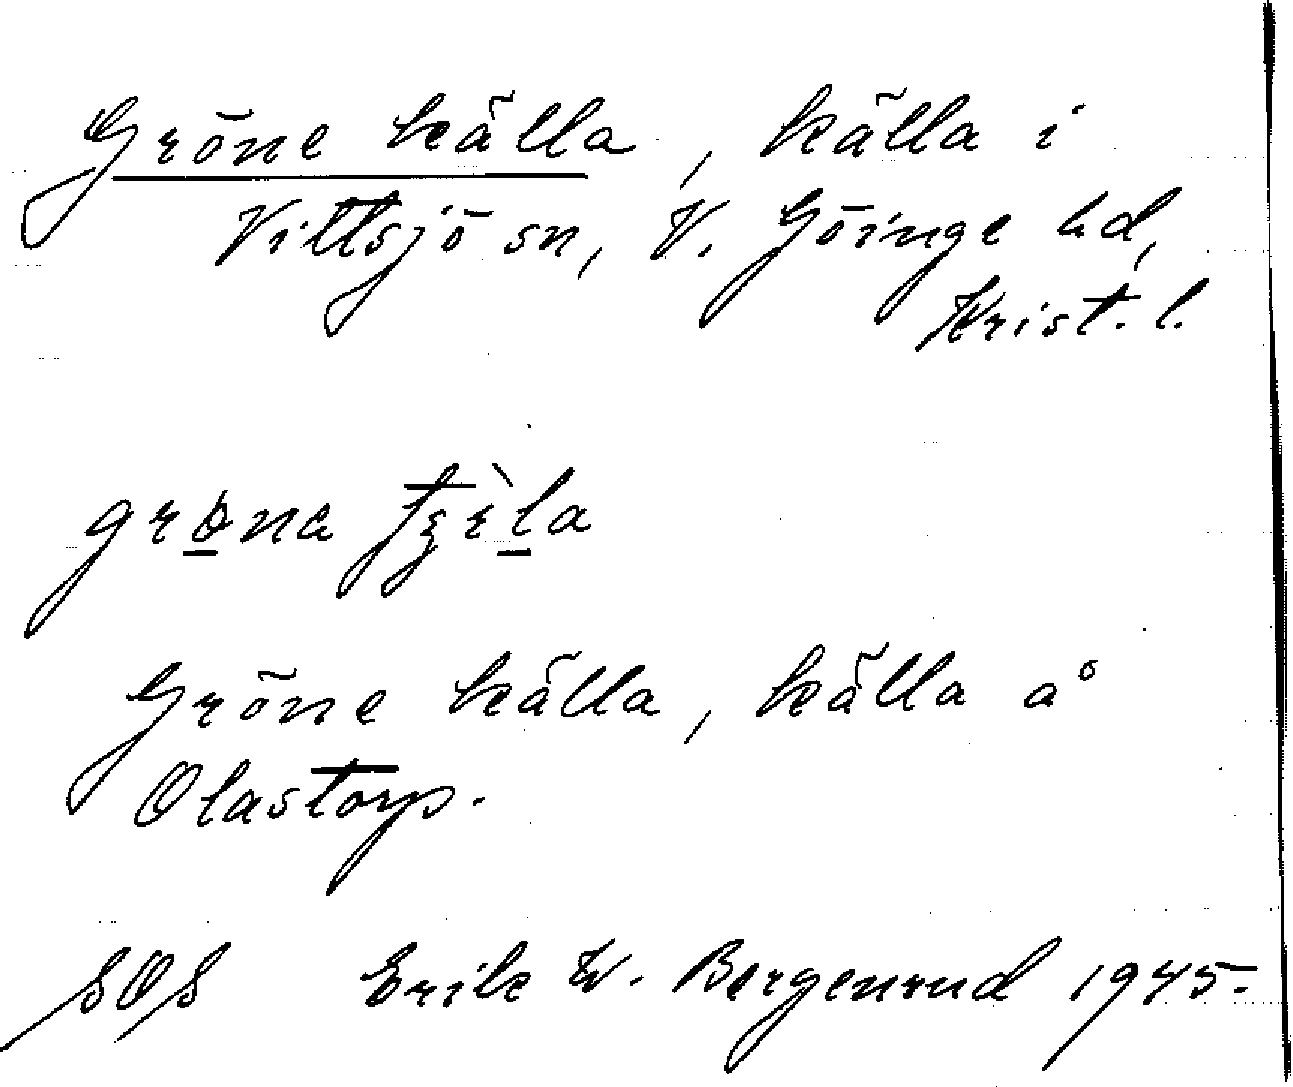 Gröne källa, källa i
Vittsjö sn, V. Göinge hd,
Krist. l.
Gröne källa, källa å
Olastorp.
SOS Erik W. Bergenrud 1945.